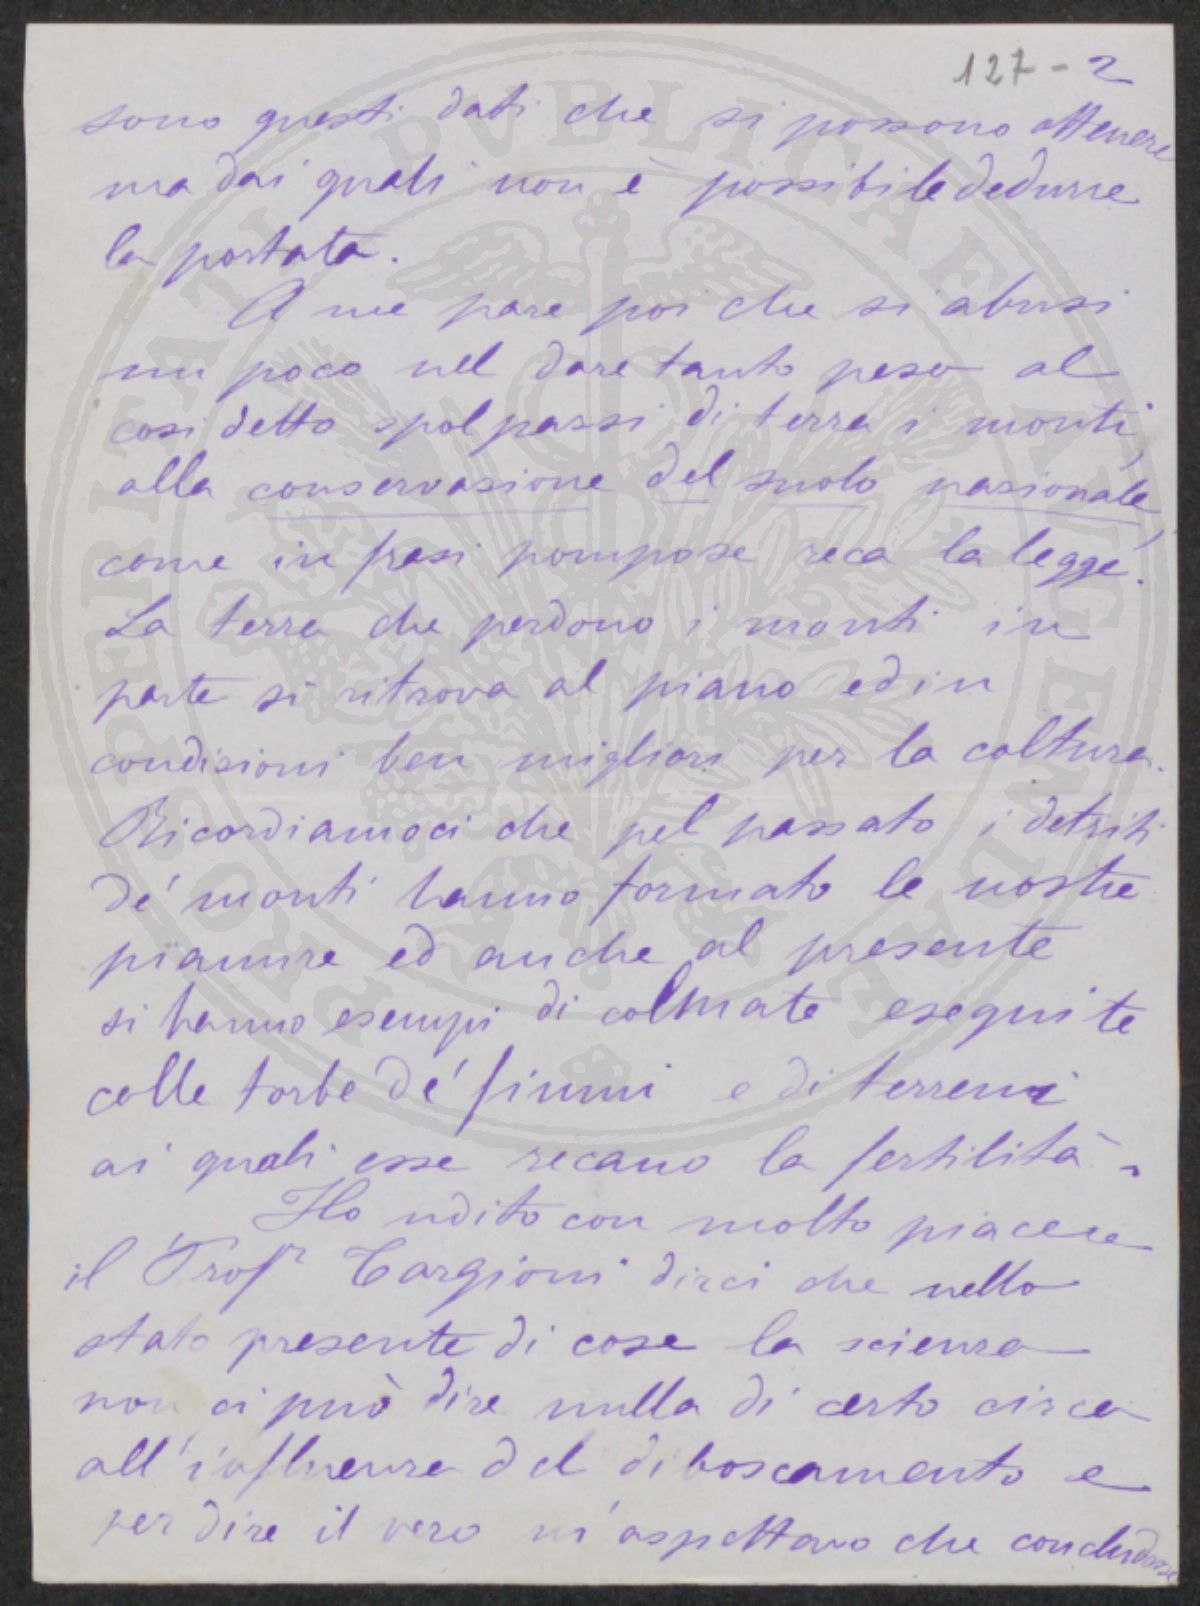 127 - 2
sono questi dati che si possono ottenere
ma dai quali non è possibile dedurre
la portata.
A me pare poi che si abusi
un poco nel dare tanto peso al
cosi detto spolparsi di terra i monti,
alla conservazione del suolo nazionale,
come in frasi pompose reca la legge.
La terra che perdono i monti in
parte si ritrova al piano ed in
condizioni ben migliori per la coltura.
Ricordiamoci che pel passato i detriti
de' monti hanno formato le nostre
pianure ed anche al presente
si hanno esempi di colmate eseguite
colle torbe de' fiumi e di terreni
ai quali esse recano la fertilità.
Ho udito con molto piacere
il Prof.r Targioni dirci che nello
stato presente di cose la scienza
non ci può dire nulla di certo circa
all'influenza del diboscamento e
per dire il vero m'aspettavo che concludesse